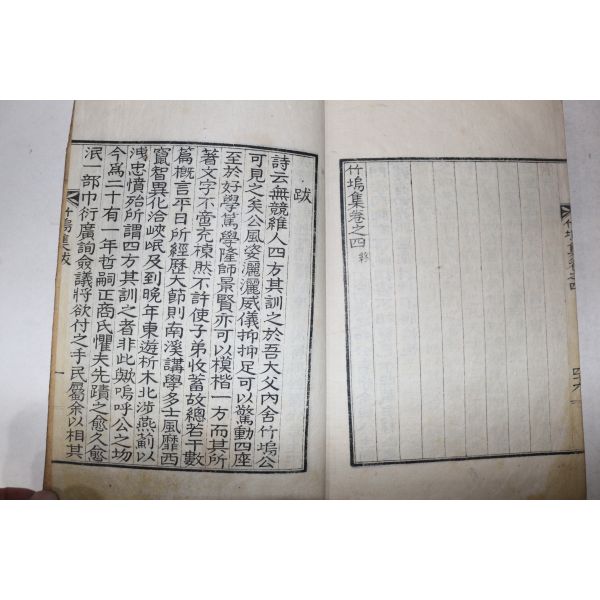 竹塢集卷之四
竹塢集卷之四 終
跋
詩云無競維人四方其訓之於吾大父內舍竹塢公
可見之矣公風姿灑灑威儀抑抑足可以驚動四座
至於好學篤學隆師景賢亦可以模楷一方而其所
著文字不啻充棟然不許使子弟收蓄故總若干數
篇槪言平日所經歷大節則南溪講學多士風靡西
竄智異化洽峽岷及到晚年東遊析木北涉燕薊以
洩忠憤殆所謂四方其訓之者非此歟嗚呼公之圽
今爲二十有一年哲嗣正商氏懼夫先蹟之愈久愈
泯一部巾衍廣詢僉議將欲付之手民屬余以相其
竹塢集跋
一